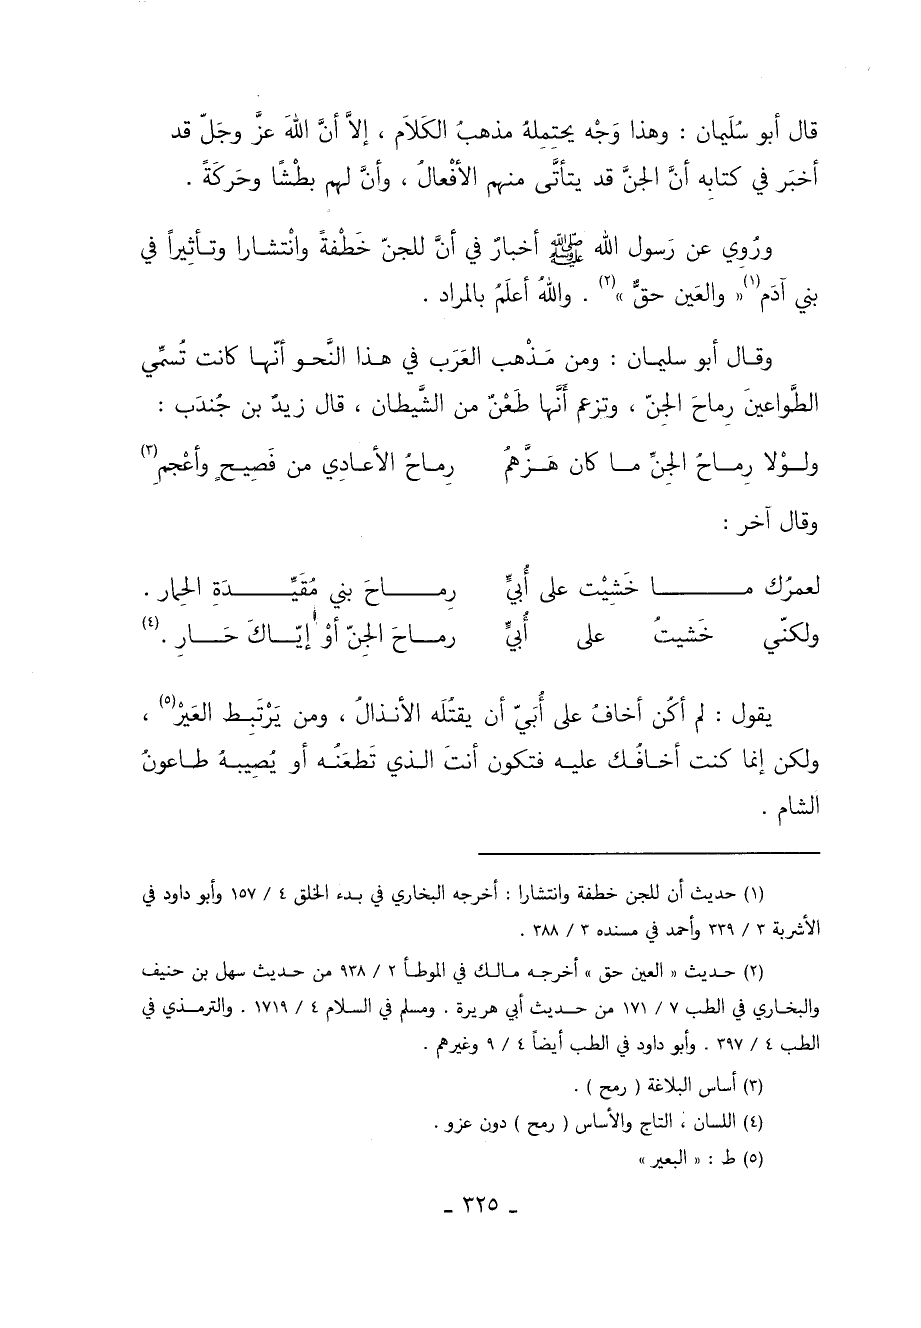 قال أبو سُلَيمان : وهذا وَجْه يحتمِلهُ مذهبُ الكَلاَم ، إلاَّ أنَّ اللهَ عزَّ وجَلّ قد
أخبَر في كتابِه أنَّ الجنَّ قد يتأتَّى منهم الأفْعالُ ، وأنَّ لهم بطْشًا وحَركَةً .
ورُوِي عن رَسول الله ﷺ أخبارٌ في أنَّ للجنّ خَطْفةً وانْتشارا وتأثيراً في
بني آدَم(١)« والعَين حقٌّ »(٢) . واللهُ أعلَمُ بالمراد .
وقال أبو سليمان : ومن مَذْهب العَرَب في هذا النَّحو أنّها كانت تُسمِّي
الطَّواعينَ رِماحَ الجِنّ ، وتزعم أنَّها طَعْنٌ من الشَّيطان ، قال زيدٌ بن جُندَب :
ولَوْلا رِماحُ الجِنِّ ما كان هَزَّهمُ رِماحُ الأعادِي من فَصِيحٍ وأعْجم(٣)
وقال آخر :
لعمرُك ما خَشِيْت على أُبيٍّ رِماحَ بني مُقَيِّدَةِ الحِمار .
ولكنّي خَشيتُ على أُبيٍّ رِماحَ الجِنّ أوْ إيّاكَ حَارِ .(٤)
يقول : لم أكُن أخافُ على أُبَيّ أن يقتُلَه الأنذالُ ، ومن يَرْتَبِط العَيْرَ(٥) ،
ولكن إنما كنت أخافُك عليه فتكون أنتَ الذي تَطعَنُه أو يُصِيبهُ طاعونُ
الشام .
(١) حديث أن للجن خطفة وانتشارا : أخرجه البخاري في بدء الخلق ٤ / ١٥٧ وأبو داود في
الأشربة ٣ / ٣٣٩ وأحمد في مسنده ٣ / ٣٨٨ .
(٢) حديث « العين حق » أخرجه مالك في الموطأ ٢ / ٩٣٨ من حديث سهل بن حنيف
والبخاري في الطب ٧ / ١٧١ من حديث أبي هريرة . ومسلم في السلام ٤ / ١٧١٩ . والترمذي في
الطب ٤ / ٣٩٧ . وأبو داود في الطب أيضاً ٤ / ٩ وغيرهم .
(٣) أساس البلاغة ( رمح ) .
(٤) اللسان ، التاج والأساس ( رمح ) دون عزو .
(٥) ط : « البعير »
ـ ٣٢٥ ـ